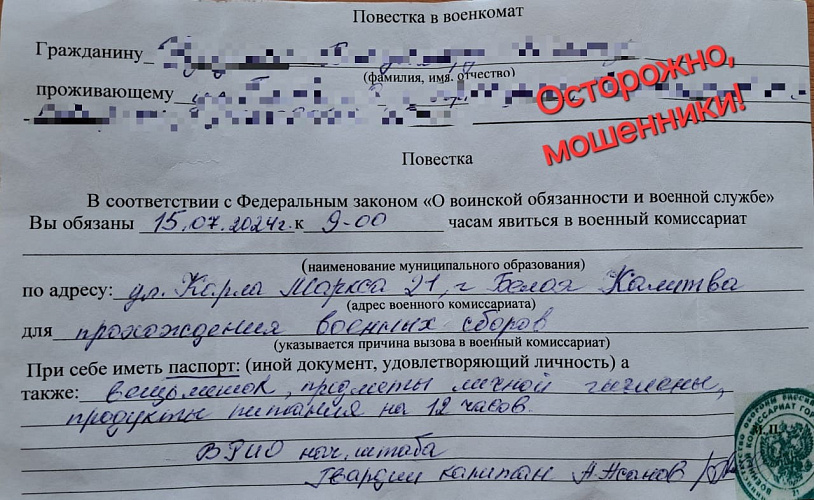 Повестка в военкомат
Гражданину
(фамилия, имя, отчество)
проживающему
Осторожно,
мошенники!
Повестка
В соответствии с Федеральным законом «О воинской обязанности и военной службе»
Вы обязаны 15.07.2024г. к 9-00 часам явиться в военный комиссариат
(наименование муниципального образования)
по адресу: ул. Карла Маркса 21, г Белая Калитва
(адрес военного комиссариата)
для прохождения военных сборов
(указывается причина вызова в военный комиссариат)
При себе иметь паспорт: (иной документ, удовлетворяющий личность) а
также: вещьмешок, предметы личной гигиены,
продукты питания на 12 часов.
ВРИО нач. штаба
Гвардии капитан